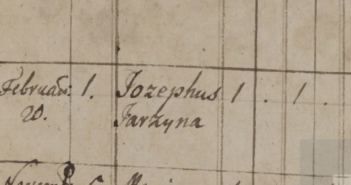 Februar: 1. Jozephus 1 . 1 .
20. Jarzyna